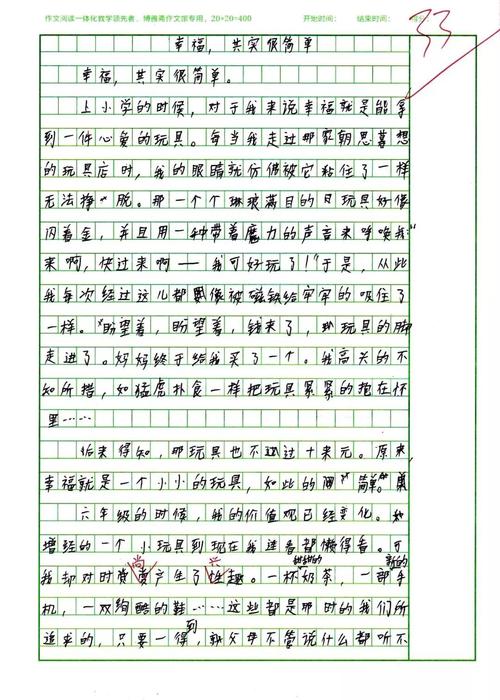 作文阅读一体化教学领先者,博雅斋作文原专用,20×20=400 开始时间: 结束时间: 得分:
33
幸福,其实很简单
幸福,其实很简单。
上小学的时候,对于我来说幸福就是能拿
到一件心爱的玩具。每当我走过那家朝思暮想
的玩具店时,我的眼睛就仿佛被它粘住了一样
无法挣脱。那一个个琳琅满目的玩具好像
闪着金,并且用一种带着魔力的声音来呼唤我:“
来啊,快过来啊——我可好玩了!”于是,从此
我每次经过这儿都像被磁铁给牢牢的吸住了
一样。“盼望着,盼望着,钱来了,玩具的脚
走进了。妈妈终于给我买了一个。我高兴的不
知所措,如猛虎扑食一样把玩具紧紧的抱在怀
里……
后来得知,那玩具也不过十来元。原来,
幸福就是一个小小的玩具,如此的简单。
六年级的时候,我的价值观已经变化。如
增经的一个小玩具到现在我连看都懒得看。可
尚 兴 甜甜的 新的
我却对时产生了趣。一杯奶茶,一部手
机,一双绚酷的鞋……这些都是那时的我们所
到
追求的,只要一得,就父母不管说什么都听不